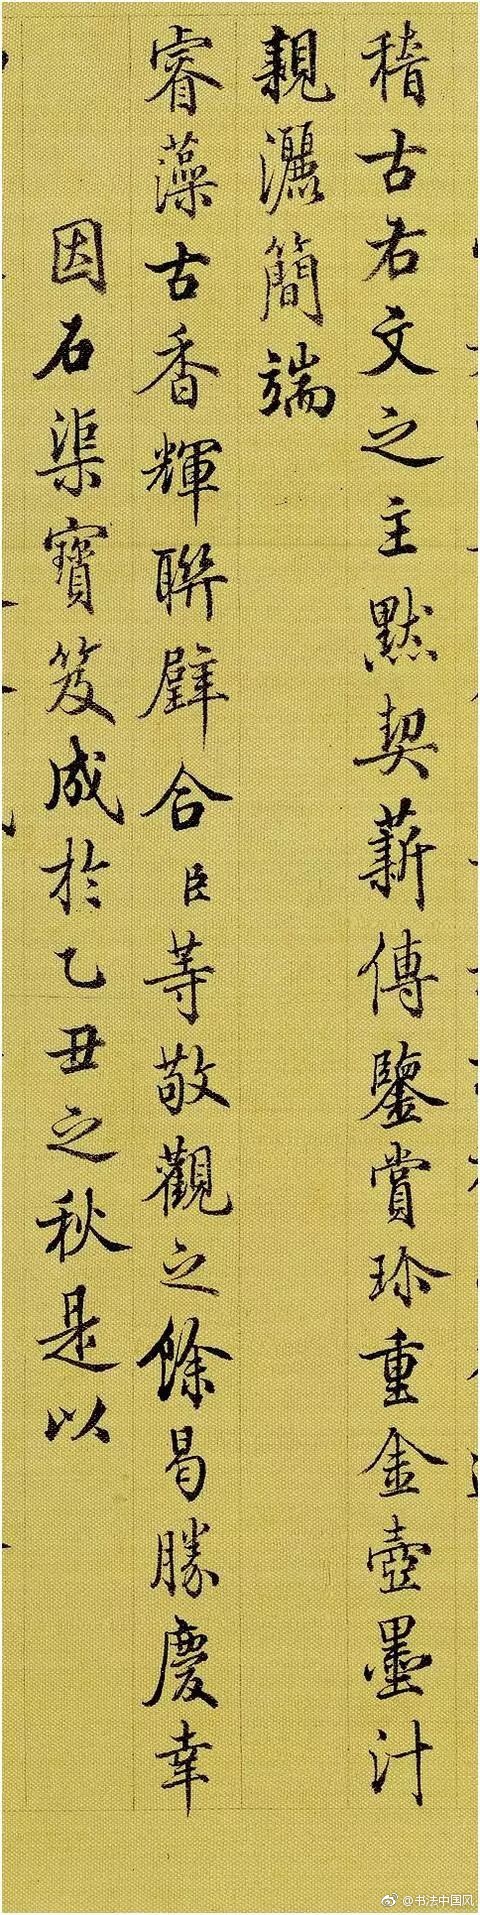 稽古右文之主默契薪傳鑒賞珍重金壺墨汁
親灑簡端
睿藻古香輝聯璧合臣等敬觀之餘曷勝慶幸
因石渠寶笈成於乙丑之秋是以
@书法中国风